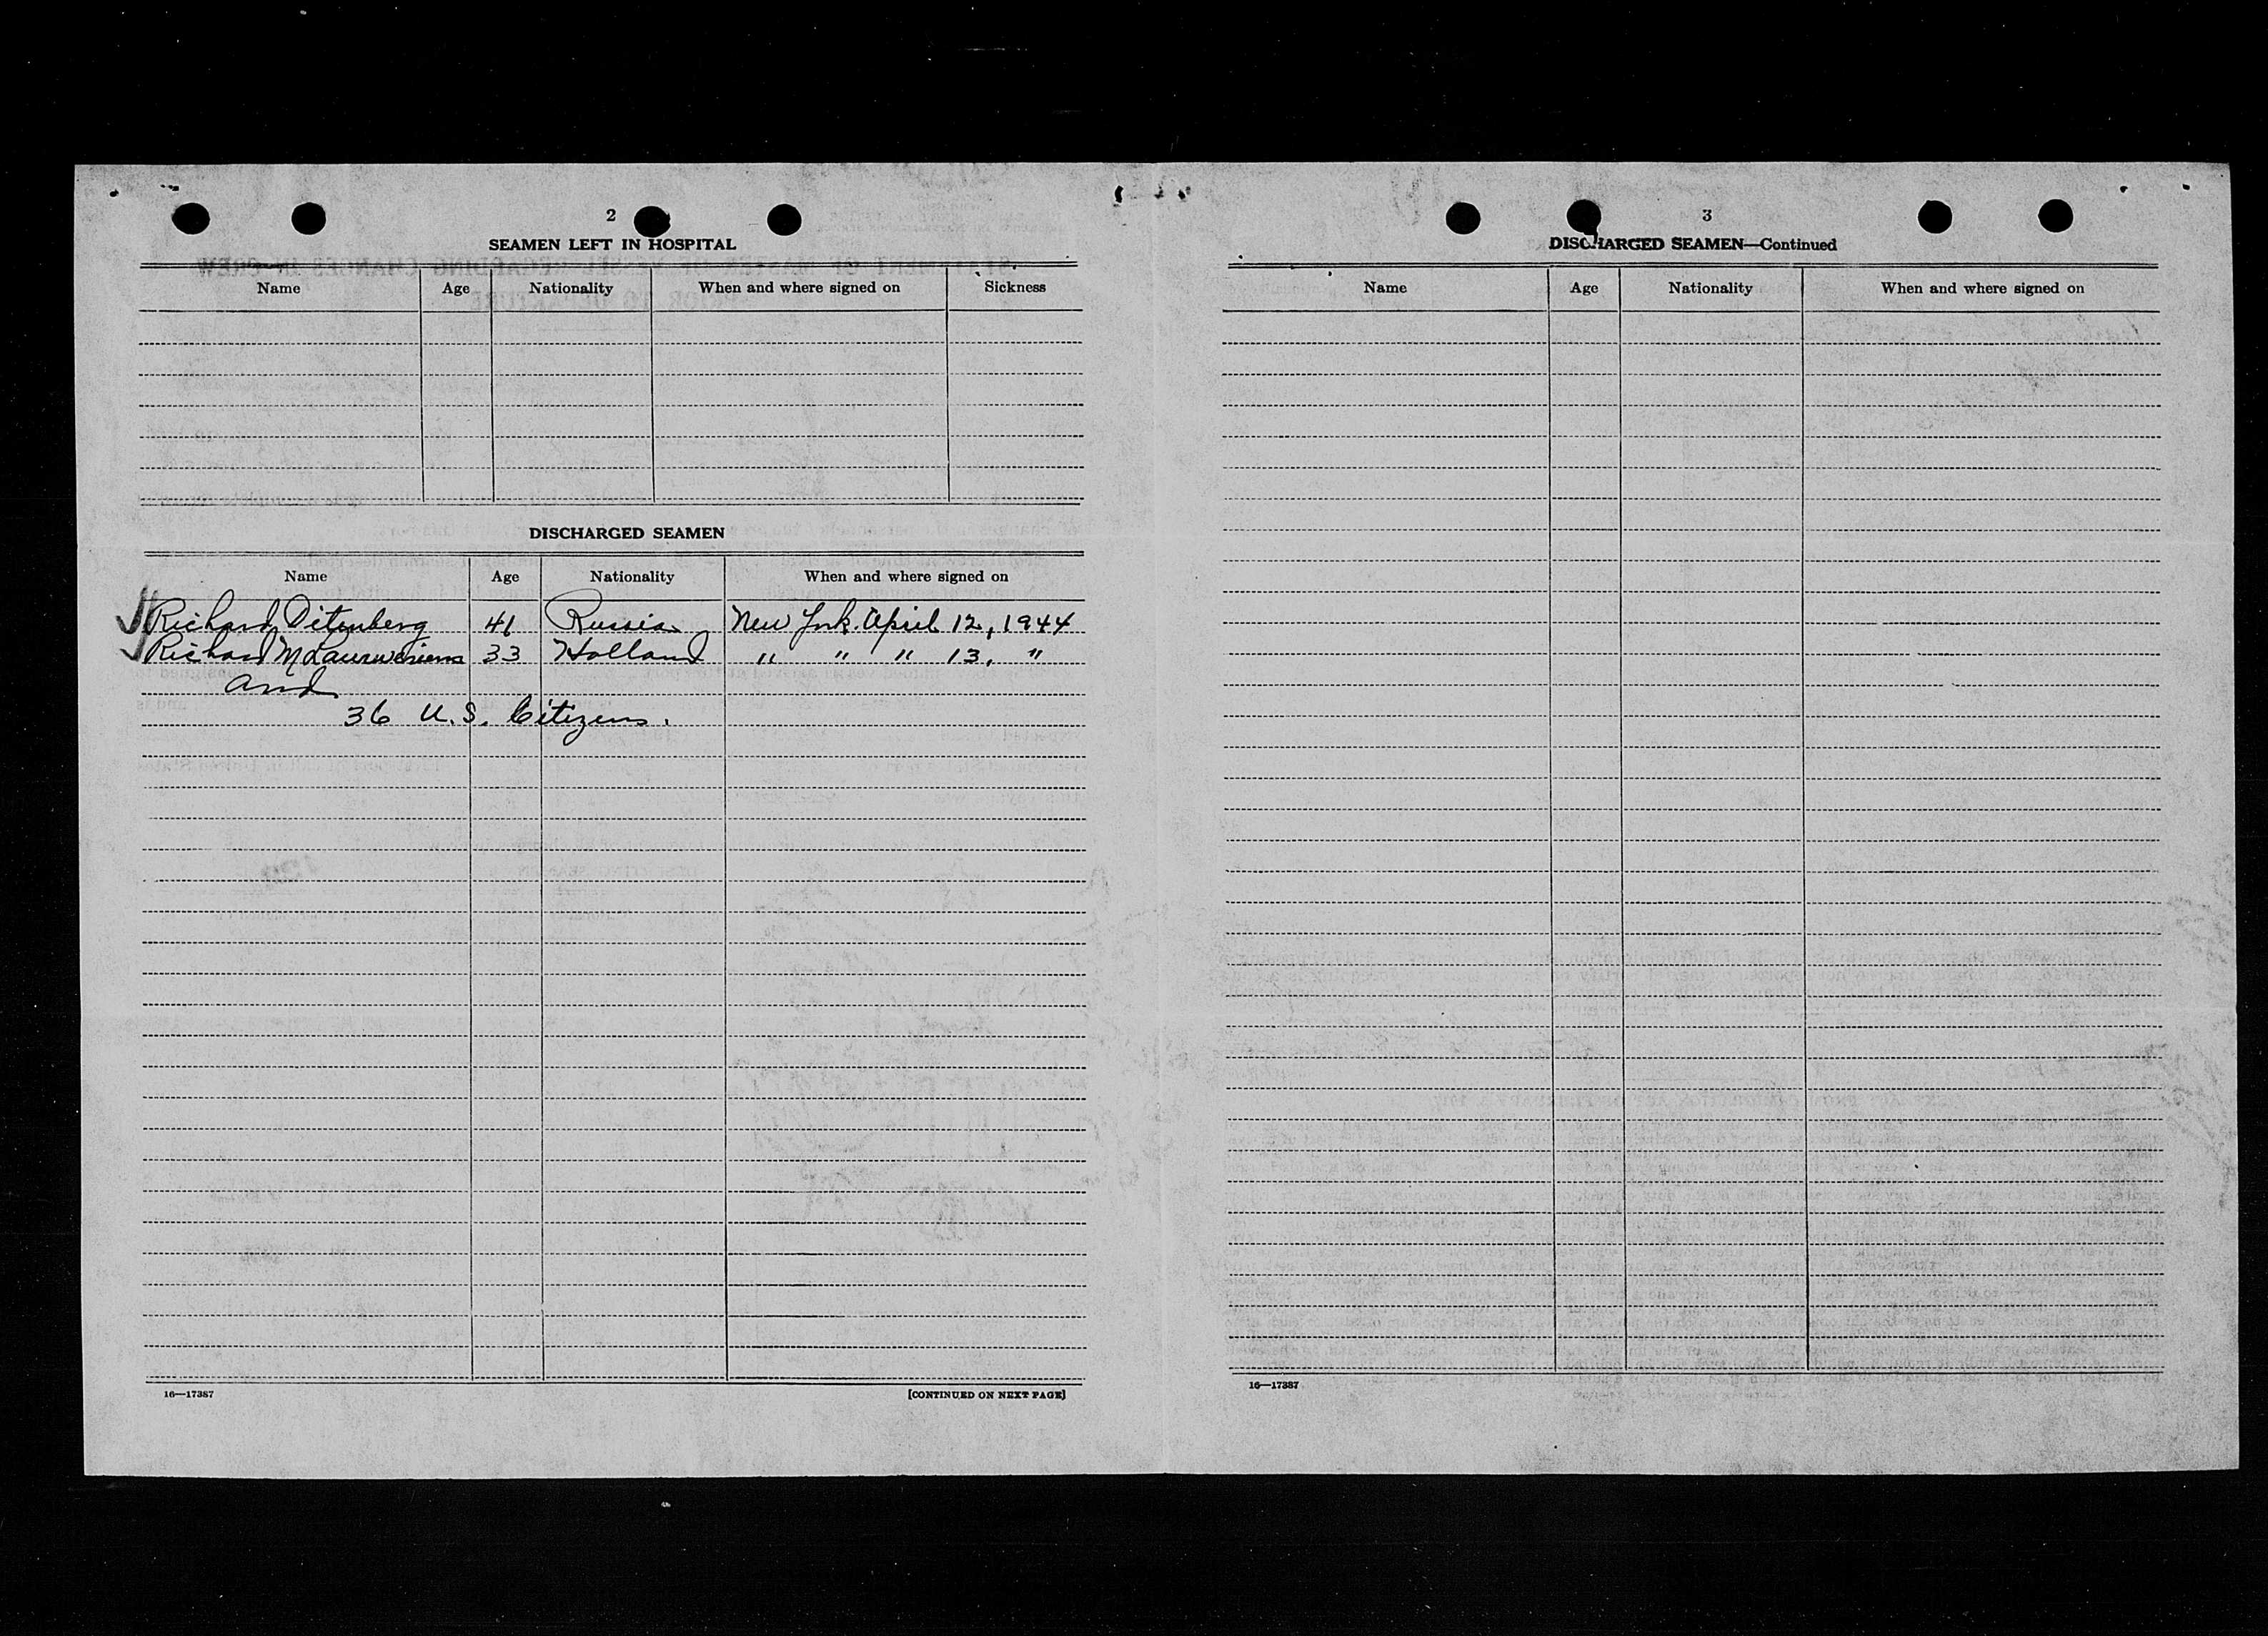 2
SEAMEN LEFT IN HOSPITAL
Name Age Nationality When and where signed on Sickness
DISCHARGED SEAMEN
Name Age Nationality When and where signed on
Richard Ditenberg 41 Russia New York April 12, 1944
Richard M 33 Holland " " " 13, "
and
36 U.S. Citizens.
16—17387 [CONTINUED ON NEXT PAGE]
3
DISCHARGED SEAMEN—Continued
Name Age Nationality When and where signed on
16—17387